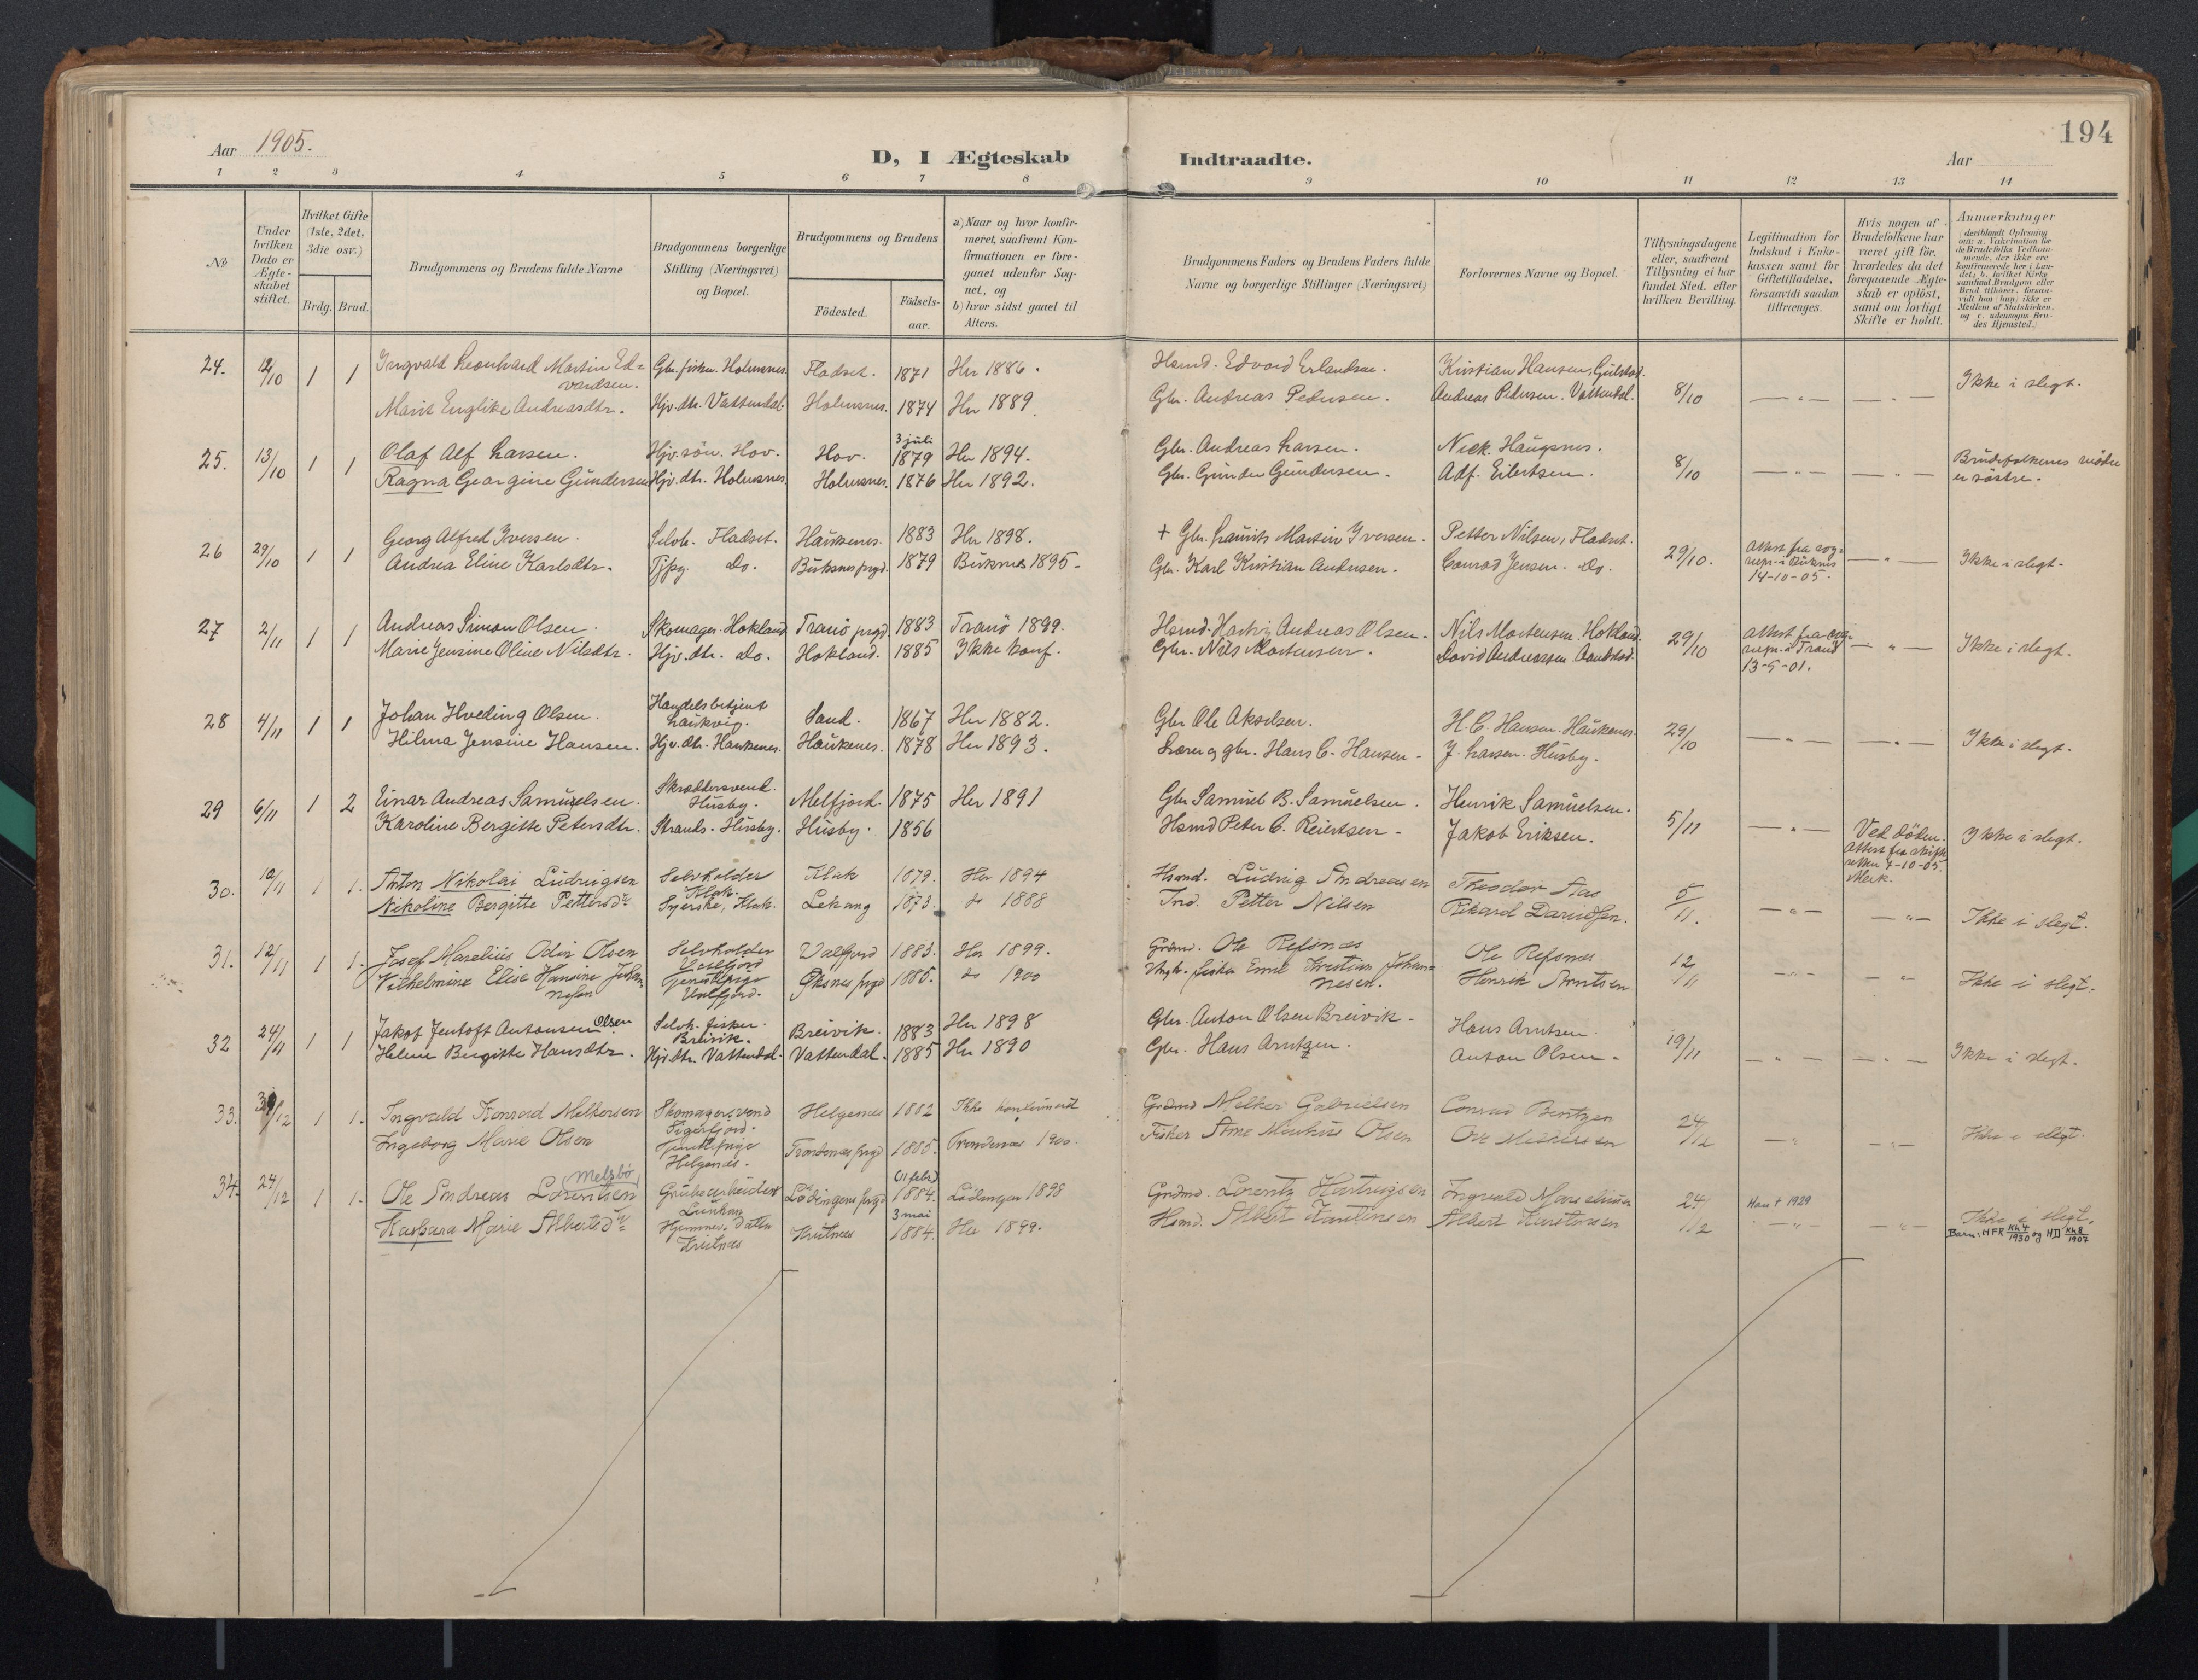 194
Aar 1905.
D, I Ægteskab Indtraadte.
Aar
1 2 3 4 5 6 7 8 9 10 11 12 13 14
№
Under hvilken Dato er Ægteskabet stiftet.
Hvilket Gifte (1ste, 2det, 3die osv.)
Brdg. Brud.
Brudgommens og Brudens fulde Navne
Brudgommens borgerlige Stilling (Næringsvei) og Bopæl.
Brudgommens og Brudens
Födested.
Födselsaar.
a) Naar og hvor konfirmeret, saafremt Konfirmationen er foregaaet udenfor Sognet, og
b) hvor sidst gaaet til Alters.
Brudgommens Faders og Brudens Faders fulde Navne og borgerlige Stillinger (Næringsvei)
Forlovernes Navne og Bopæl.
Tillysningsdagene eller, saafremt Tillysning ei har fundet Sted, efter hvilken Bevilling.
Legitimation for Indskud i Enkekassen samt for Giftetilladelse, forsaavidt saadan tiltrænges.
Hvis nogen af Brudefolkene har været gift för, hvorledes da det foregaaende Ægteskab er oplöst, samt om lovligt Skifte er holdt.
Anmerkninger (deriblandt Oplysning om: a. Vakcination for de Brudefolks Vedkommende, der ikke ere konfirmerede her i Landet; b. hvilket Kirkesamfund Brudgom eller Brud tilhörer, forsaavidt han (hun) ikke er Medlem af Statskirken, og c. udensogns Brudes Hjemsted.)
24. 12/10 1 1 Ingvald Leonhard Martin Edvardsen. Gbr. fisker. Holmsnes. Fladset. 1871 Her 1886. Hsmd. Edvard Erlandsen. Kristian Hansen, Gulstad.
Marit Englike Andreasdtr. Hjv. dtr. Vattendal. Holmsnes. 1874 Her 1889. Gbr. Andreas Pedersen. Andreas Pedersen. Vattendal. 8/10 — " — — " — Ikke i slegt.
25. 13/10 1 1 Olaf Alf Larsen. Hjv. sön. Hov. Hov. 3 juli 1879 Her 1894. Gbr. Andreas Larsen. Nick. Haugsnes.
Ragna Georgine Gundersen Hjv. dtr. Holmsnes. Holmsnes. 1876 Her 1892. Gbr. Gunder Gundersen. Adf. Eilertsen. 8/10 — " — — " — Brudefolkenes mödre er söstre.
26 29/10 1 1 Georg Alfred Iversen. Selvh. Fladset. Haukenes. 1883 Her 1898. + Gbr. Laurits Martin Iversen. Petter Nilsen, Fladset.
Andrea Eline Karlsdtr. Tjpg. do. Buksnes prgd. 1879 Buksnes 1895. Gbr. Karl Kristian Andersen. Conrad Jensen. do. 29/10. Attest fra sognepr. i Buksnes 14-10-05. — " — Ikke i slegt.
27 2/11 1 1 Andreas Simon Olsen. Skomager. Hokland Tranö prgd 1883 Tranö 1899. Hsmd. Hartvig Andreas Olsen. Nils Mortensen. Hokland.
Marie Jensine Oline Nilsdtr. Hjv. dtr. do. Hokland. 1885 Ikke konf. Gbr. Nils Mortensen. David Andreassen. 29/10 Attest fra sognepr. i Tranö 13-9-01. — " — Ikke i slegt.
28 4/11 1 1 Johan Hveding Olsen. Handelsbetjent Laukvig. Sand. 1867 Her 1882. Gbr Ole Akselsen. H. C. Hansen. Haukenes.
Hilma Jensine Hansen. Hjv. dtr. Haukenes. Haukenes. 1878 Her 1893. Lærer og gbr. Hans C. Hansen. J. Larsen. Husby. 29/10 — " — — " — Ikke i slegt.
29 6/11 1 2 Einar Andreas Samuelsen. Skræddersvend. Husby. Melfjord. 1875 Her 1891 Gbr Samuel B. Samuelsen. Henrik Samuelsen.
Karoline Bergitte Petersdtr. Strands. Husby. Husby. 1856 Hsmd Peter C. Reiertsen. Jakob Eriksen. 5/11 — " — Ved döden. Attest fra skifteretten 7-10-05. Ikke i slegt.
30. 10/11 1 1. Anton Nikolai Ludvigsen Selvholder Klak. Klak 1879. Her 1894 Hsmd. Ludvig Andreasen Theodor Aas
Nikoline Bergitte Pettersdtr Syerske, Klak. Lekang 1873. do 1888 Ind. Petter Nilsen Rikard Davidsen. 5/11. — " — — " — Ikke i slegt.
31. 12/11 1 1. Josef Marelius Odin Olsen Selvholder Valfjord Valfjord 1883. Her 1899. Grdmd. Ole Refsnes Ole Refsnes
Vilhelmine Elise Hansine Johannesen Tjenestepige Valfjord. Öksnes prgd 1885. do 1900 fisker Emil Kristian Johannesen. Henrik Arntsen 12/11 — " — — " — Ikke i slegt.
32 24/11 1 1 Jakob Jentoft Antonsen Olsen Selvh. fisker. Breivik. Breivik. 1883 Her 1898 Gbr. Anton Olsen Breivik. Hans Arntsen.
Helene Birgitte Hansdtr. Hjv. dtr. Vattendal. Vattendal. 1885 Her 1890 Gbr. Hans Arntzen. Anton Olsen. 19/11 — " — — " — Ikke i slegt.
33. /12 1 1. Ingvald Konrad Melkersen Skomagersvend Sigerfjord. Helgenes 1882 Ikke konfirmeret Grdmd Melker Gabrielsen Conrad Bentzen
Ingeborg Marie Olsen Tjenestepige Helgenes. Trondenes prgd 1885. Trondenes 1900. Fisker Arne Markus Olsen Ole Melkersen 24/12 — " — " — Ikke i slegt.
34. 24/12 1 1. Ole Andreas Lorentsen Melsbö Grubearbeider Lödingens prgd (11 febr) 1884. Lödingen 1898 Grdmd. Lorentz Hartvigsen Ingvald Marelius 24/12 Han † 1929
Kaspara Marie Albertsdtr Hjemmev. datter Krutnes Krutnes 3 mai 1884. Her 1899. Hsmd. Albert Karstensen Albert Karstensen — " — — " — Ikke i slegt.
Barn: HFR Kh4/1930 og HD Kh8/1907